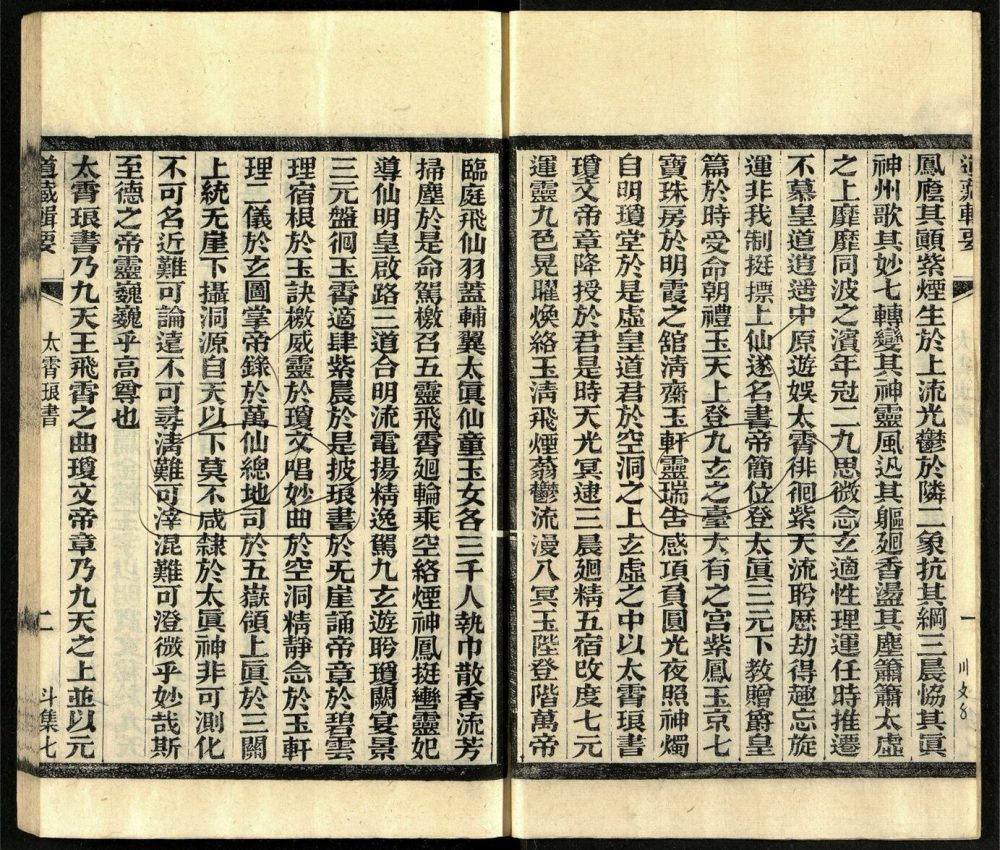 道藏輯要
一
鳳麆其頭紫煙生於上流光鬱於隣二象抗其綱三晨恊其眞
神州歌其妙七轉變其神靈風迅其軀廻香盪其塵簫簫太虛
之上靡靡同波之濱年冠二九思微念玄適性理運任時推遷
不慕皇道逍遥中原遊娱太霄徘徊紫天流聆歴劫得趣忘旋
運非我制挺摽上仙遂名書帝簡位登太眞三元下教贈爵皇
篇於時受命朝禮玉天上登九玄之臺大有之宫紫鳳玉京七
寶珠房於明霞之舘淸齋玉軒靈瑞告感項負圓光夜照神燭
自明瓊堂於是虛皇道君於空洞之上玄虛之中以太霄琅書
瓊文帝章降授於君是時天光冥逮三晨廻精五宿改度七元
運靈九色晃曜煥絡玉淸飛煙蓊鬱流漫八冥玉陛登階萬帝
臨庭飛仙羽蓋輔翼太眞仙童玉女各三千人執巾散香流芳
掃塵於是命駕檄召五靈飛霄廻輪乘空絡煙神鳳挺轡靈妃
導仙明皇啟路三道合明流電揚精逸駕九玄遊聆瓊闕宴景
三元盤徊玉霄適肆紫晨於是披琅書於无崖誦帝章於碧雲
理宿根於玉訣檄威靈於瓊文唱妙曲於空洞精靜念於玉軒
理二儀於玄圖掌帝錄於萬仙總地司於五嶽領上眞於三關
上統无崖下攝洞源自天以下莫不咸隸於太眞神非可測化
不可名近難可論遠不可尋淸難可滓混難可澄微乎妙哉斯
至德之帝靈巍巍乎高尊也
太霄琅書乃九天王飛霄之曲瓊文帝章乃九天之上並以元
道藏輯要
太霄琅書
二
斗集七